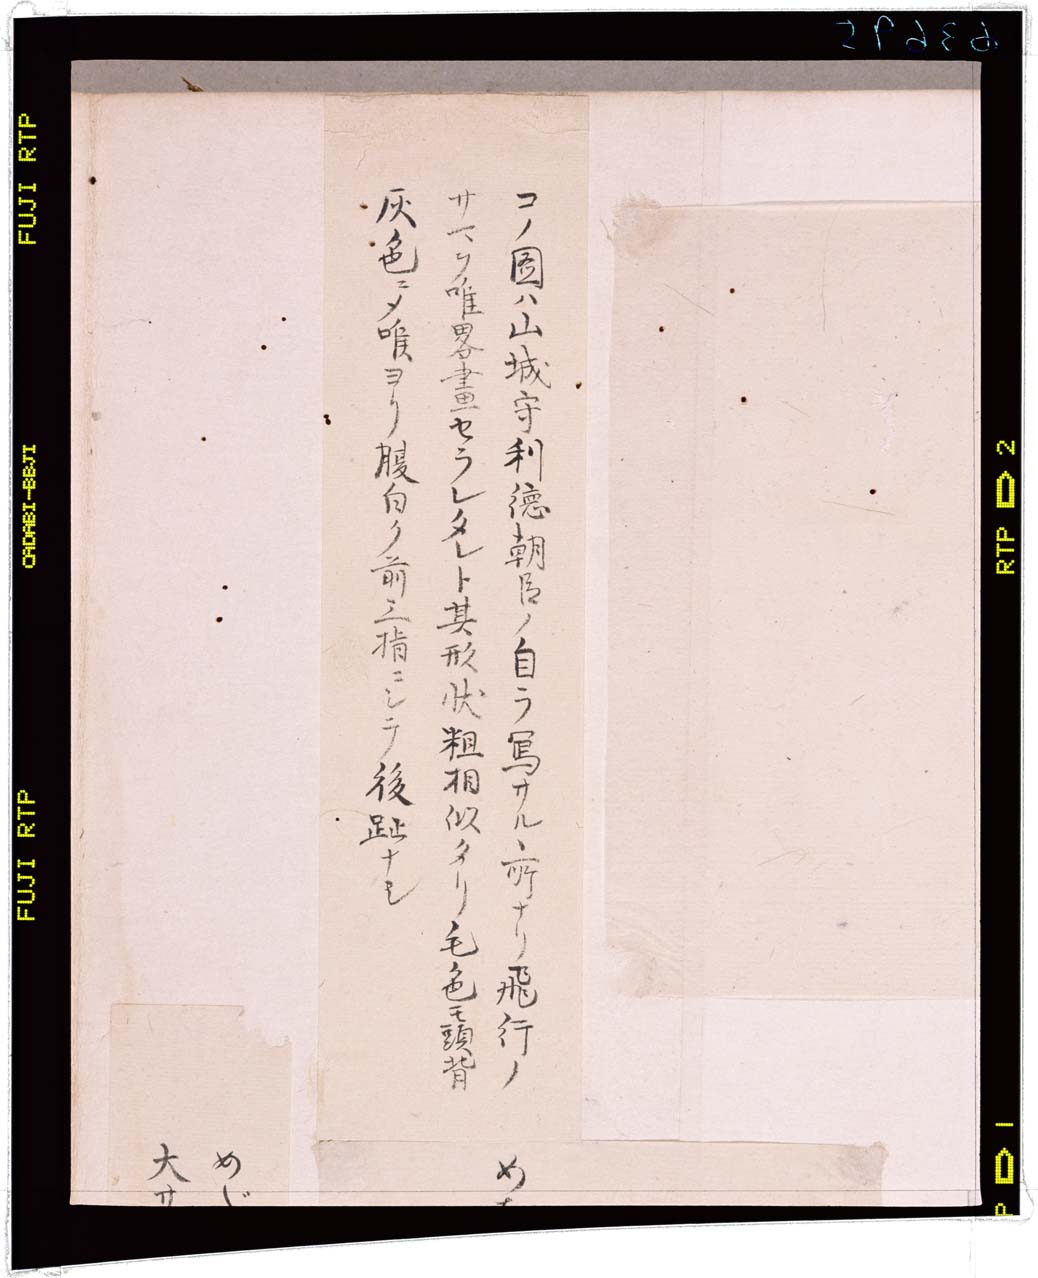 コノ圖ハ山城守利徳朝臣ノ自ラ寫サルヽ所ナリ飛行ノ
サマヲ唯畧畫セラレタレト其形状粗相似タリ毛色モ頭背
灰色ニメ喉ヨリ腹白ク前三指ニシテ後趾ナシ
め
めじ
大サ
63695
FUJI RTP
FUJI RTP
RTP 2
1